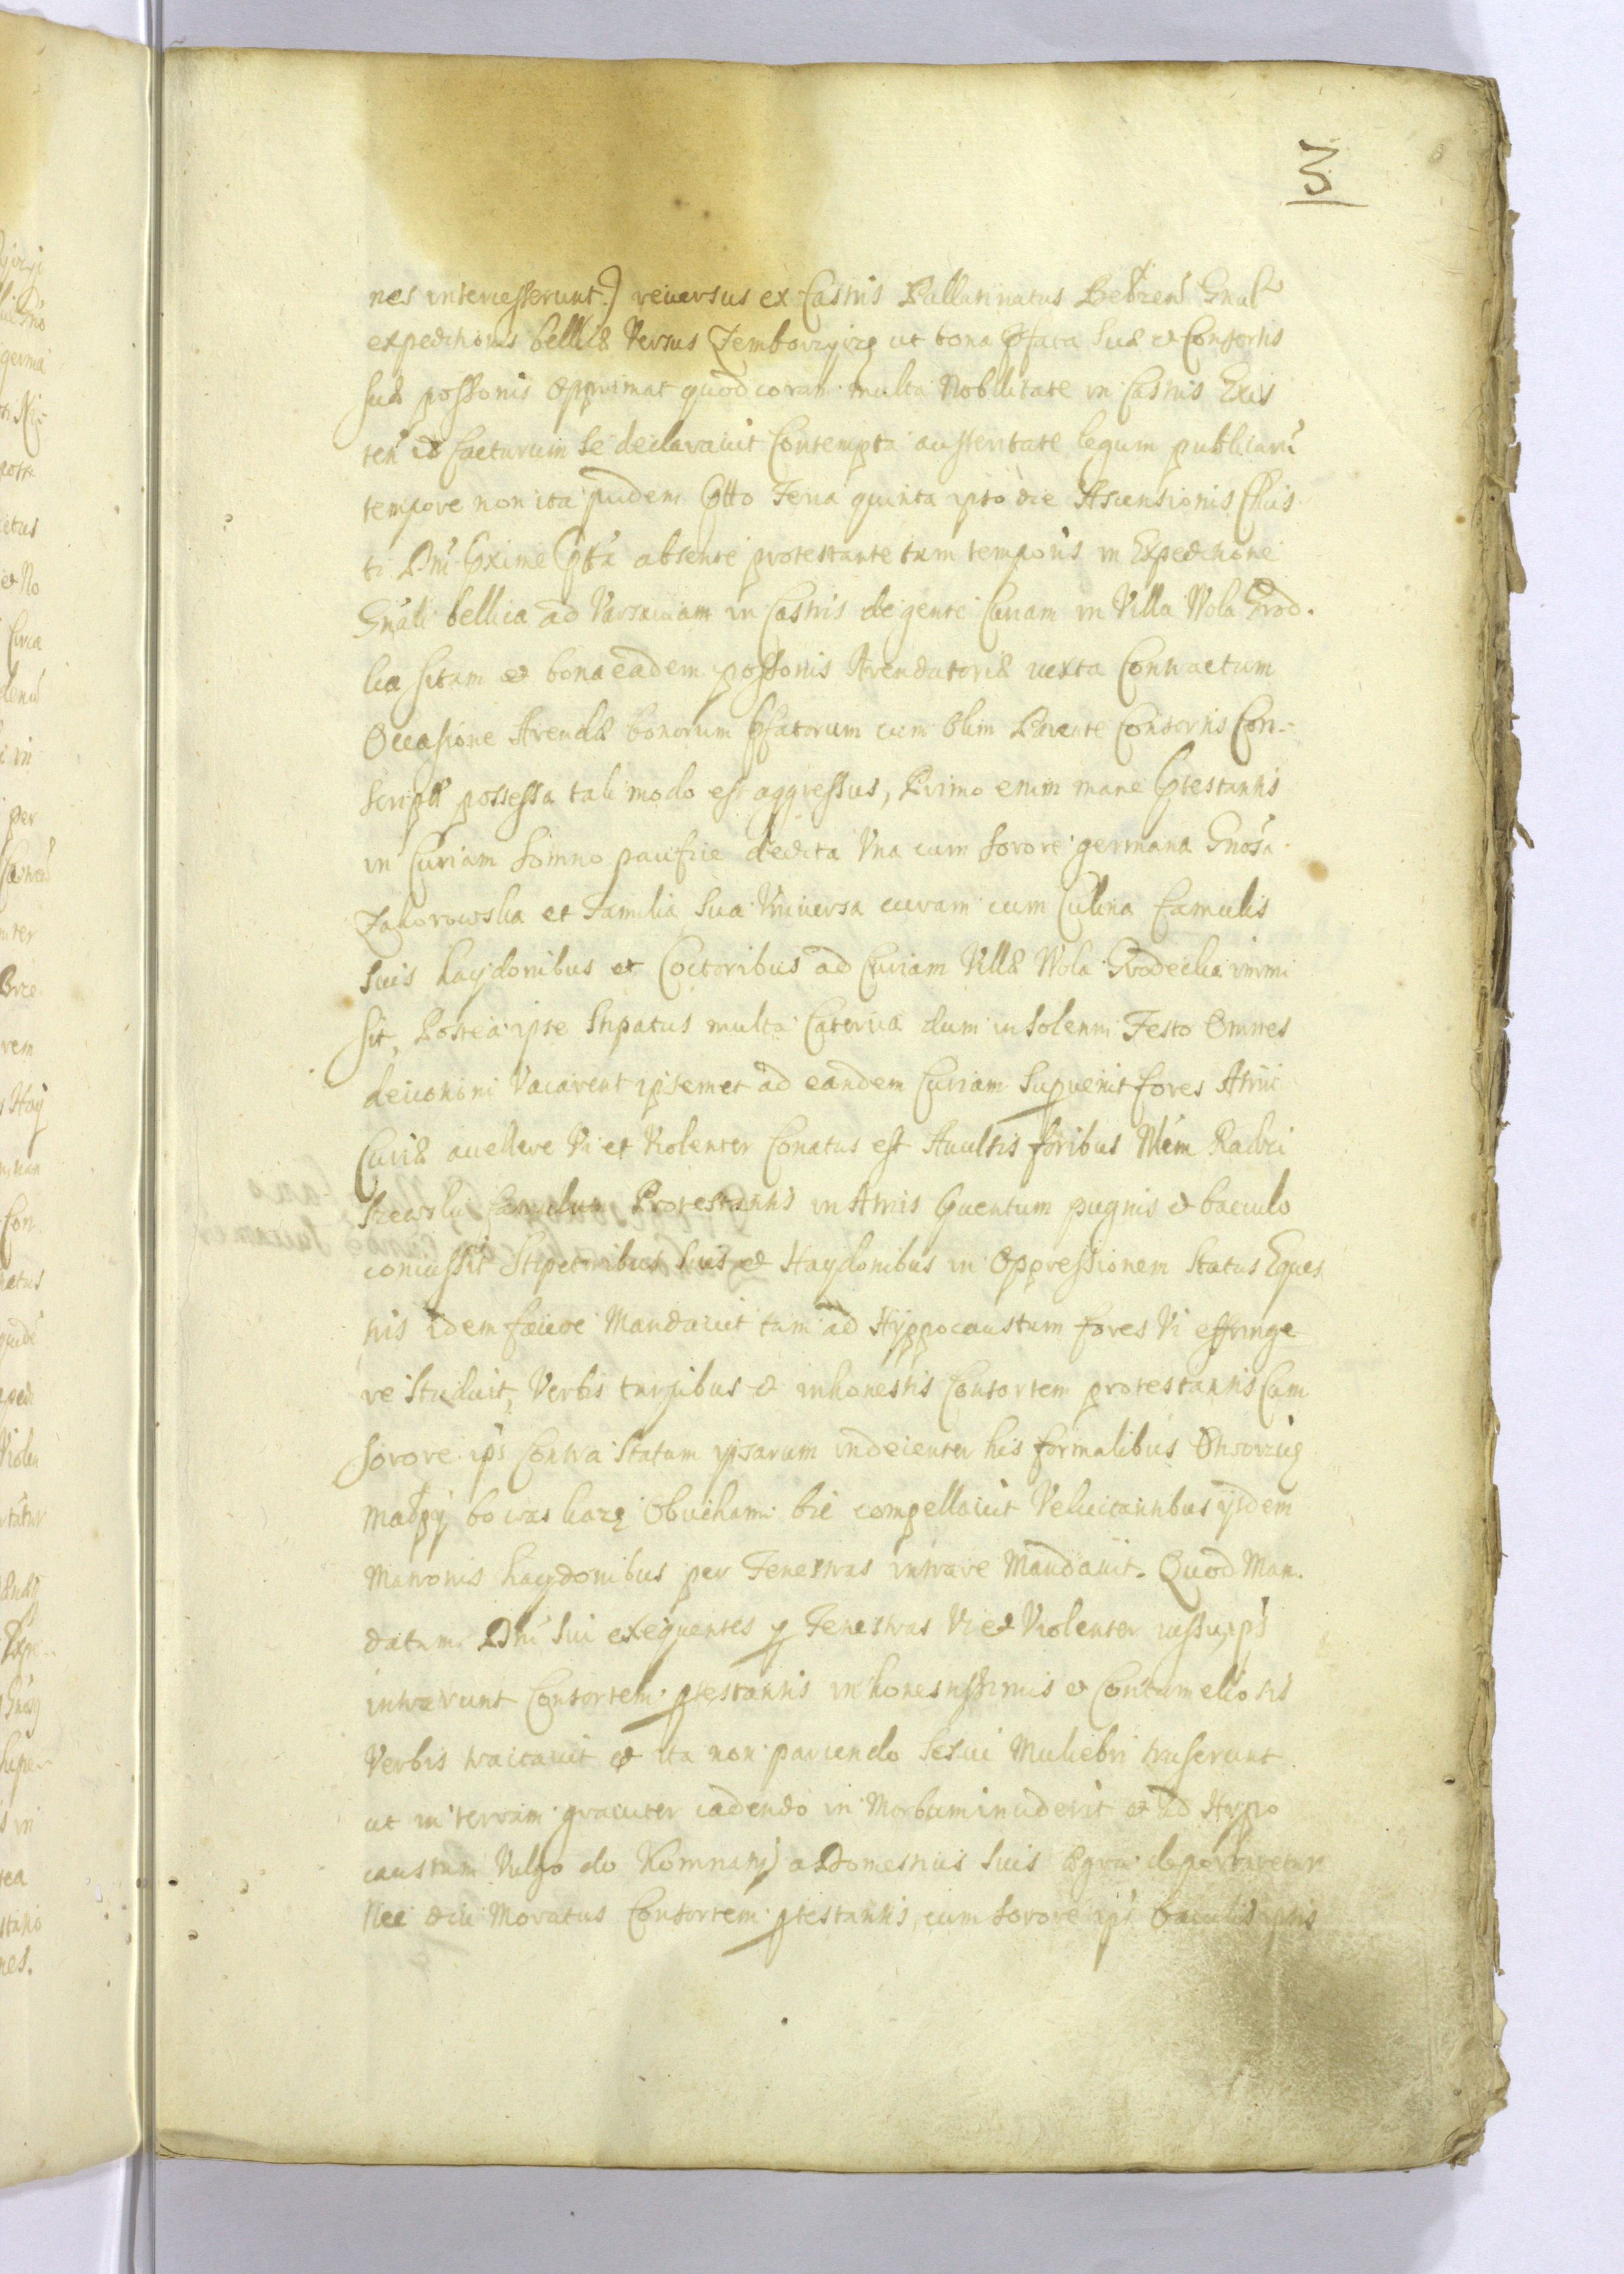 3
nes interesserunt) reuersus ex Castris Pallatinatus Belzen Gnal
expeditionis bellicæ Versus Zemborzyce ut bona pfata Suæ et Consortis
suæ possonis opprimat quod coram multa Nobilitate in Castris Exis
ten id facturum se declarauit Contempta austeritate legum publicarū
tempore non ita pridem Feria quinta ipso die Ascensionis Chris
ti Dni absente protestante tum temporis in Expeditione
Gnali bellica ad Varsauiam in Castris degente Curiam in Villa Wola Grod.
lia sitam et bona eadem possonis Arendatoriæ iuxta Contractum
Occasione Arendæ bonorum pfatorum cum Olim Parente Consortis Con-
scripta possessa tali modo est aggressus, Primo enim mane Ptestantis
in Curiam Somno pacifice dedita Vna cum Sorore germana Gnosa
Zakorowska et Familia Sua Vniuersa curam cum Culina Famulis
Suis haydonibus et Coctoribus ad Curiam Villæ Wola Grodecka immi
sit, Postea ipse Stipatus multa Caterua dum in Solenni Festo Omnes
deuotioni Vacarent ipsemet ad eandem Curiam Supuenit fores Atrii
Curiæ auellere Vi et Violenter Conatus est Auulsis foribus
Famulum Protestantis in Atriis Quentum pugnis et baculo
concussit Stipatoribus Suis et Haydonibus in Oppressionem Status Eques
tris idem facere Mandauit tum ad Hyppocaustum fores Vi effringe
re Studuit, Verbis turpibus et inhonestis Consortem protestantis Cum
Sorore ips Contra Statum ipsarum indecenter his formalibus Othworzcie
małpy bo was karzę Obuchami bic compellauit Velicitantibus ijsdem
Matronis haydonibus per Fenestras intrare Mandauit. Quod Man-
datum Dni Sui exequentes p Fenestras Vi et Violenter iussu ips
intrarunt Consortem ptestantis inhonestissimis et Contumeliosis
Verbis tractauit et ita non parcendo Sexui Muliebri truserunt
ut in terram grauiter cadendo in Morbum inciderit et ad Hypo
caustum Vulgo do Komnaty) a Domesticis Suis ægra deportaretur
Nec diu Moratus Consortem ptestantis, cum Sorore ips baculis ipsis